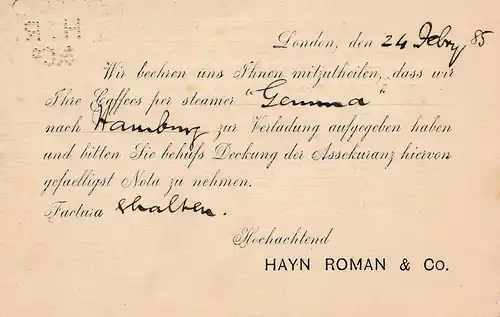 London, den 24 Febry 85
Wir beehren uns Ihnen mitzutheilen, dass wir
Ihre Caffees per steamer "Gemma"
nach Hamburg zur Verladung aufgegeben haben
und bitten Sie behufs Deckung der Assekuranz hiervon
gefaelligst Nota zu nehmen.
Factura erhalten.
Hochachtend
HAYN ROMAN & Co.